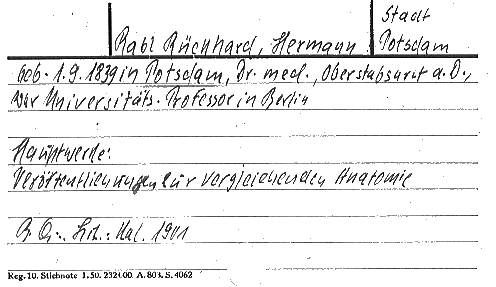 Stadt
Rabl Rückhard, Hermann Potsdam
geb. 1.9.1839 in Potsdam, Dr. med., Oberstabsarzt a.D.,
war Universitäts-Professor in Berlin
Hauptwerke:
Veröffentlichungen zur vergleichenden Anatomie
Lit.: Kal. 1901
Reg. 10. Stichnote 1. 50. 232400. A. 803. S. 4062